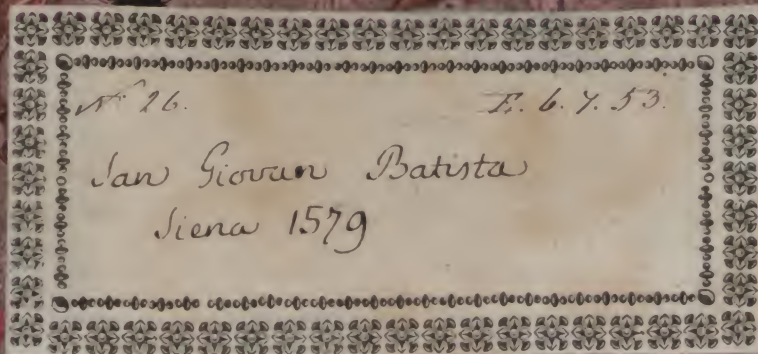 N.º 26. E. 6. 7. 53.
San Giovan Batista
Siena 1579